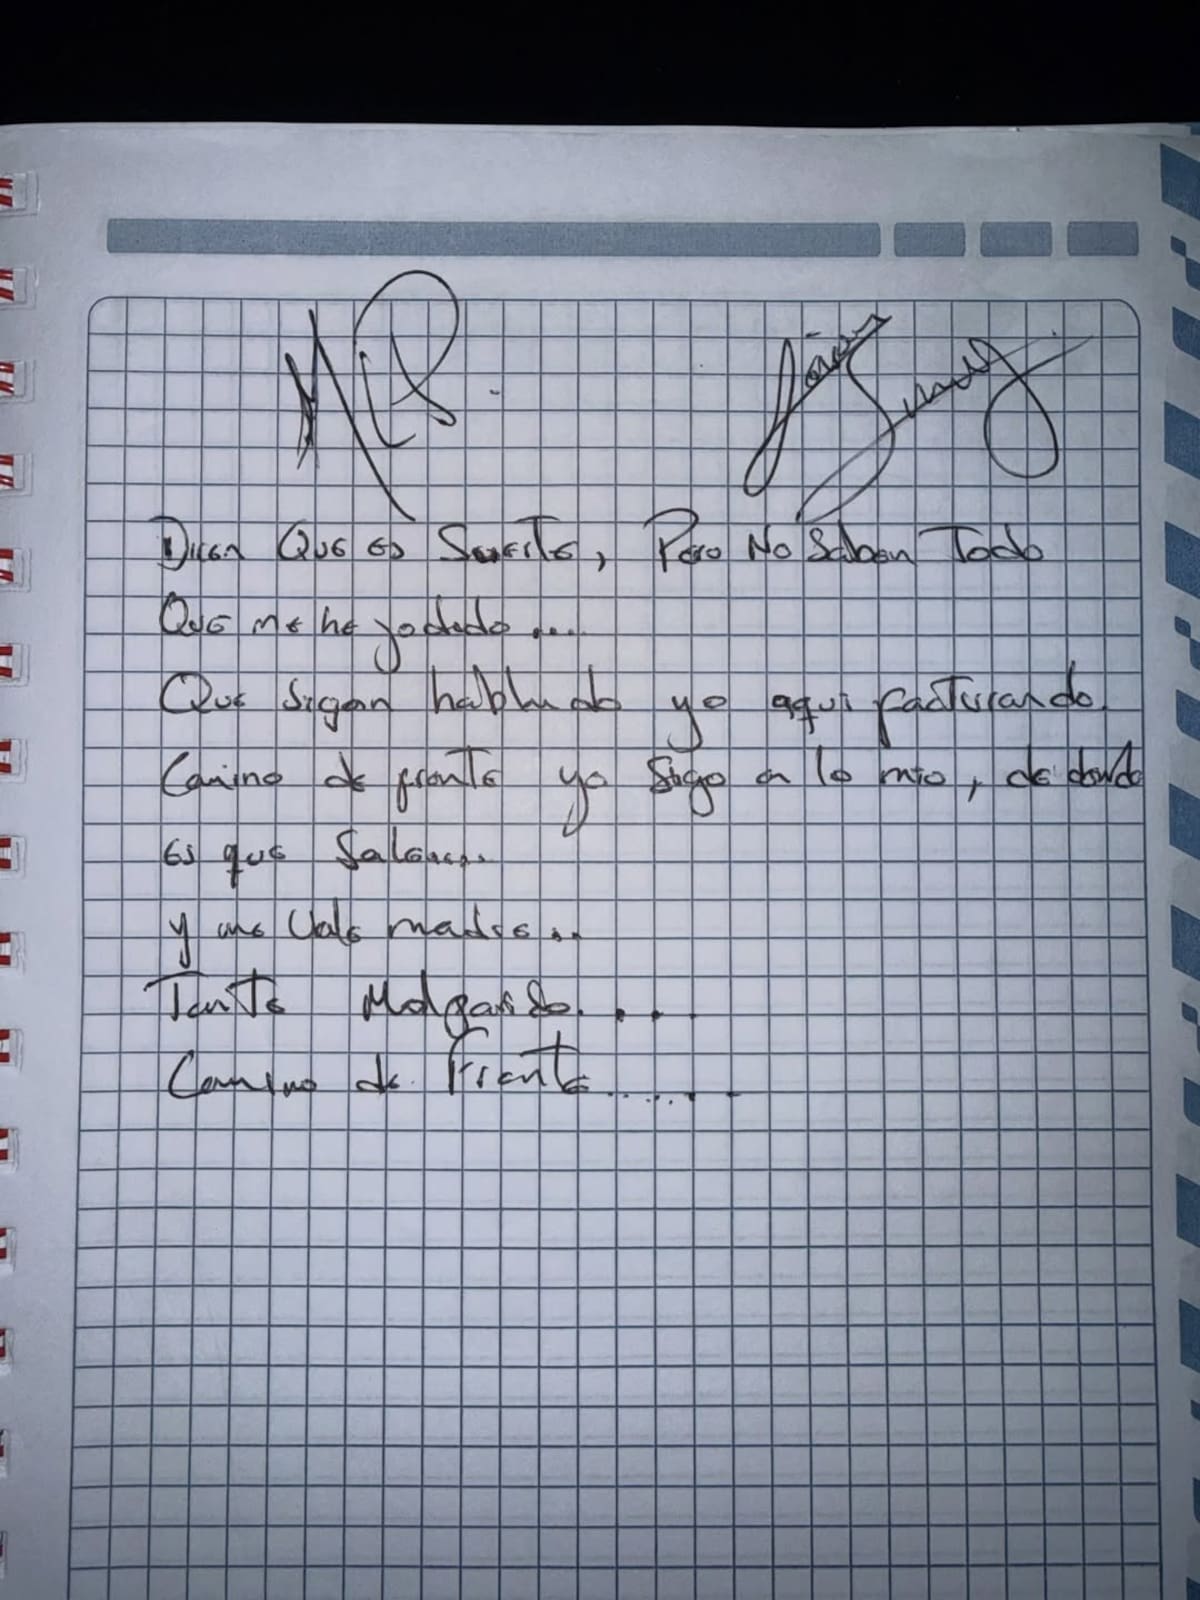 Dicen Que es Suerte, Pero No Saben Todo
Que me he jodido....
Que sigan hablando yo aqui facturando.
Camino de frente yo sigo a lo mio, de donde
es que Salen...
y me Vale madre..
Tante Malparido....
Camino de Frente.......